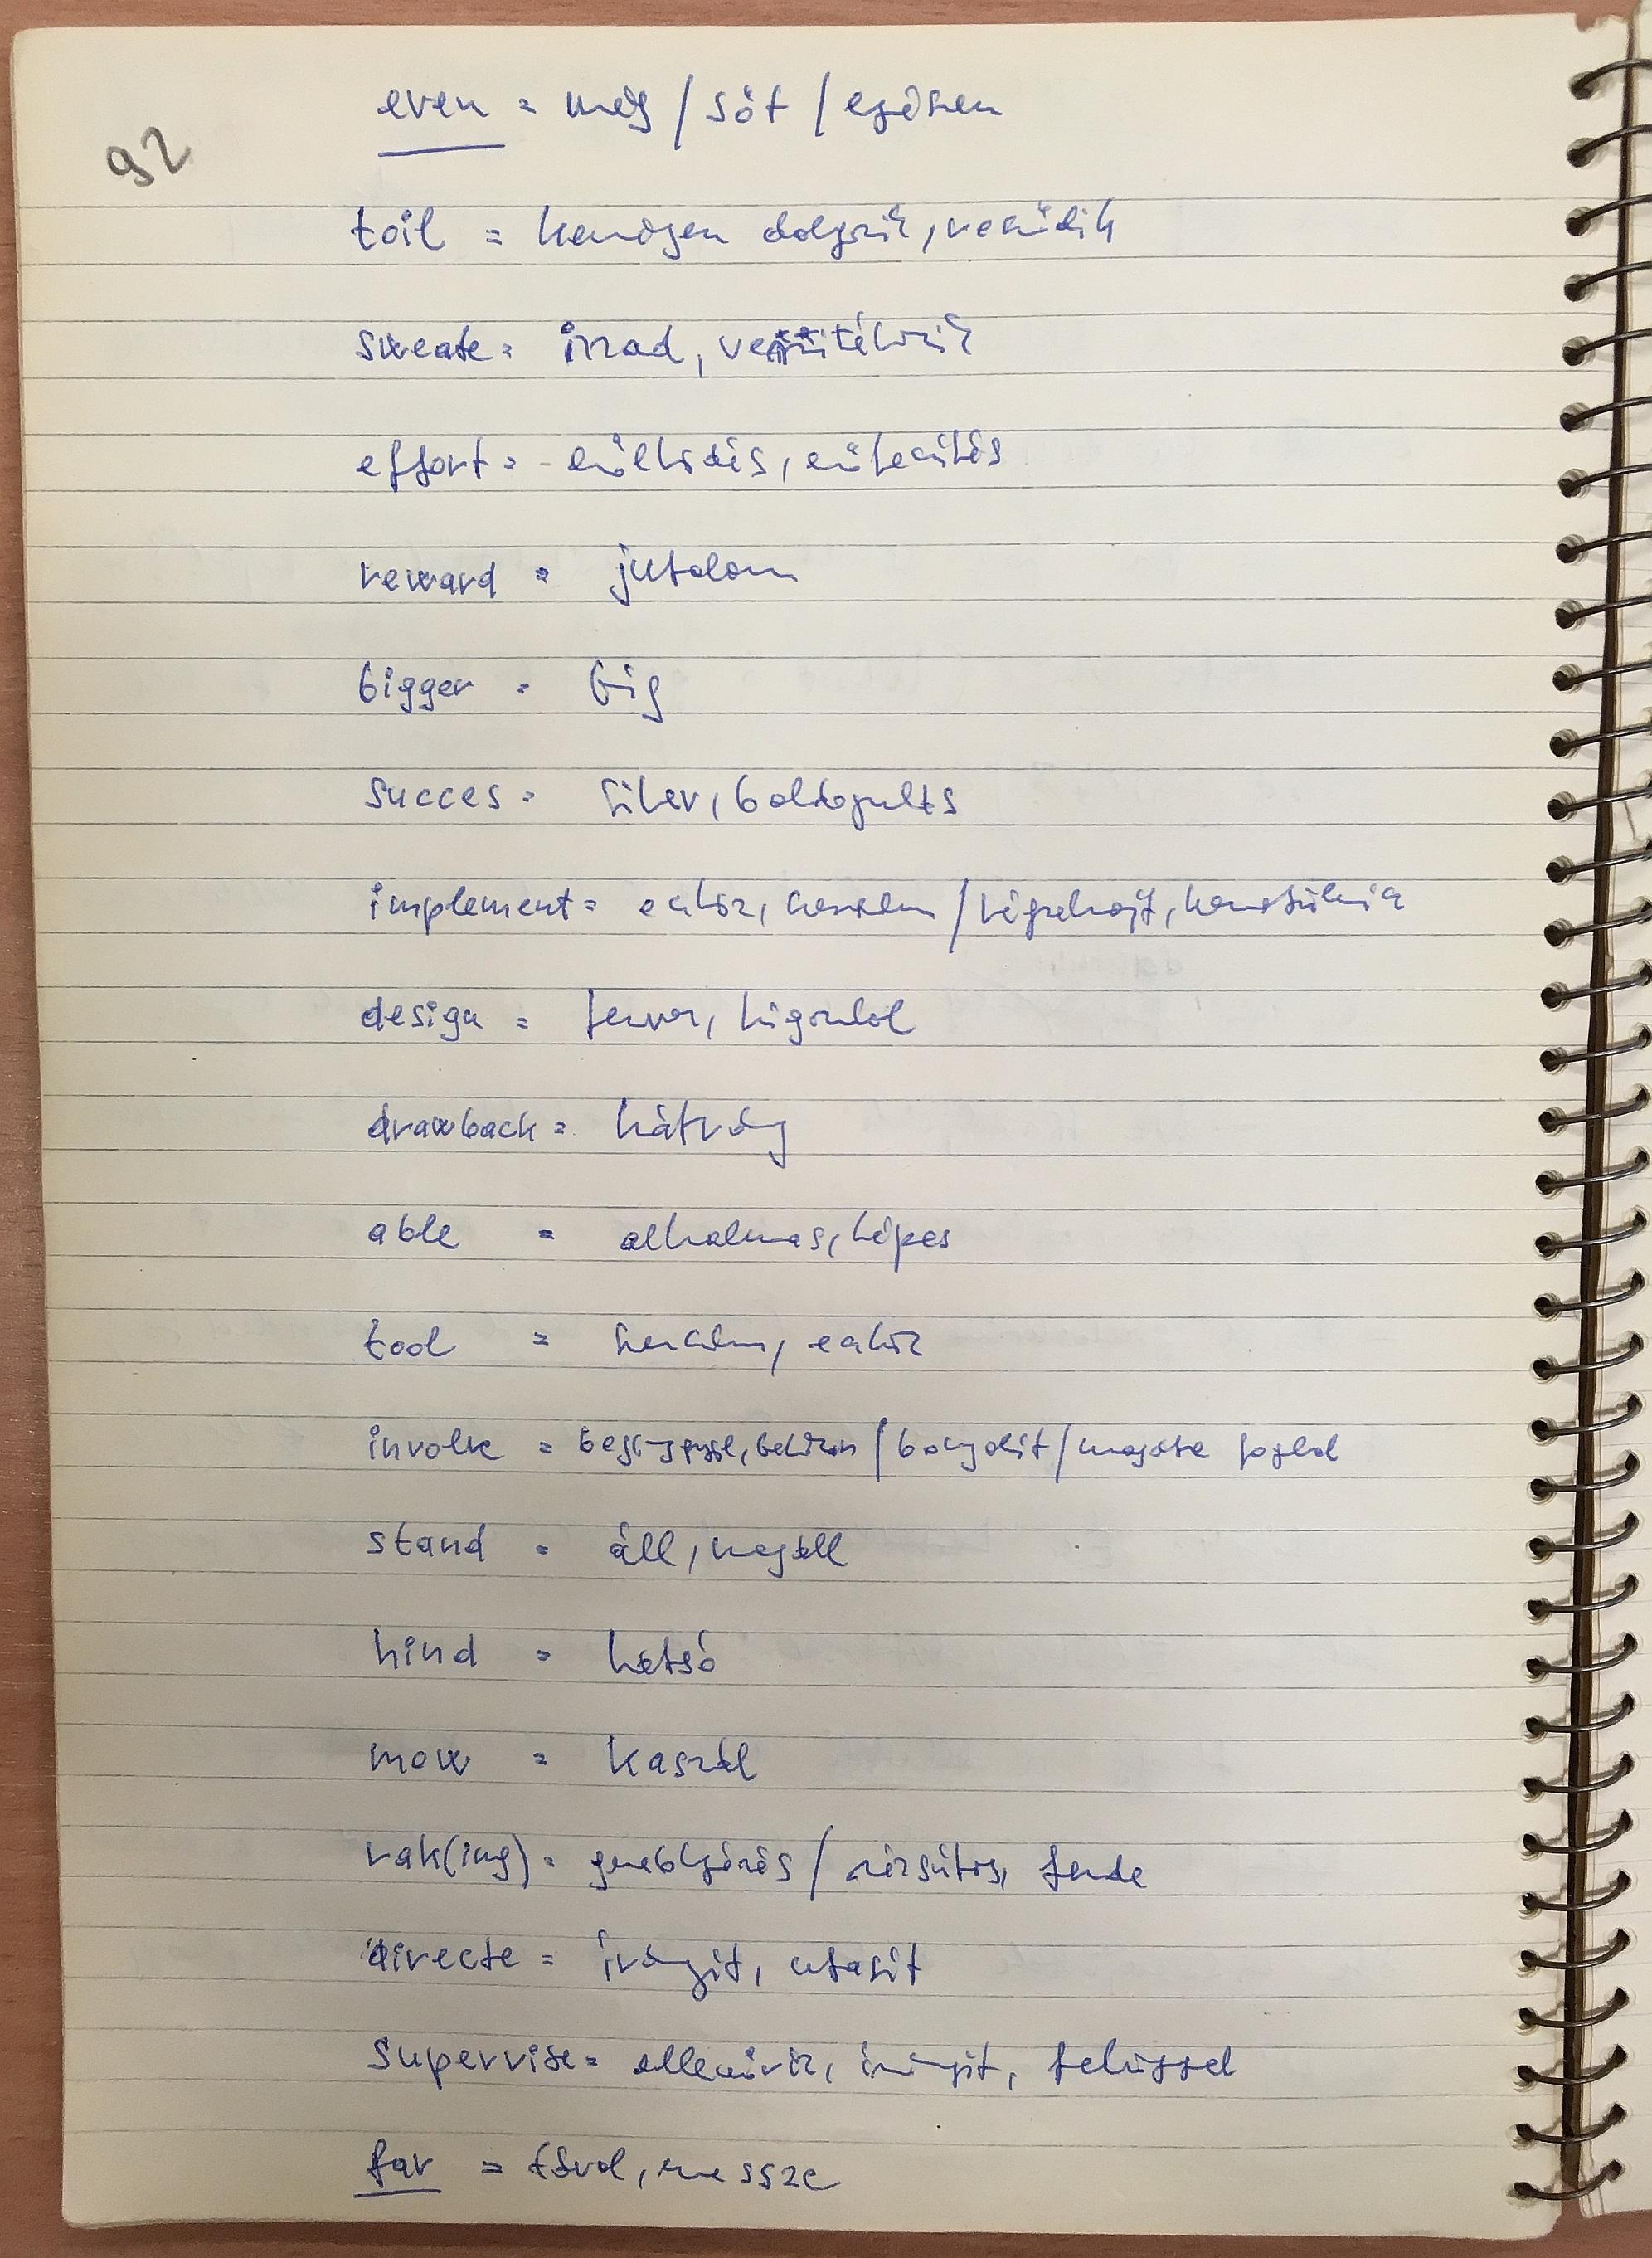 92
even = még / sőt / egészen
toil = keményen dolgozik, vesződik
sweate = izzad, verítékezik
effort = erőlködés, erőfeszítés
reward = jutalom
bigger = big
succes = siker, boldogulás
implement = eszköz, szerszám / végrehajt,
design = tervez, kigondol
drawback = hátrány
able = alkalmas, képes
tool = szerszám, eszköz
involve = / bonyolít / magába foglal
stand = áll, megáll
hind = hátsó
mow = kaszál
rak(ing) = gereblyézés /
directe = irányít, utasít
supervise = ellenőriz, irányít, felügyel
far = távol, messze